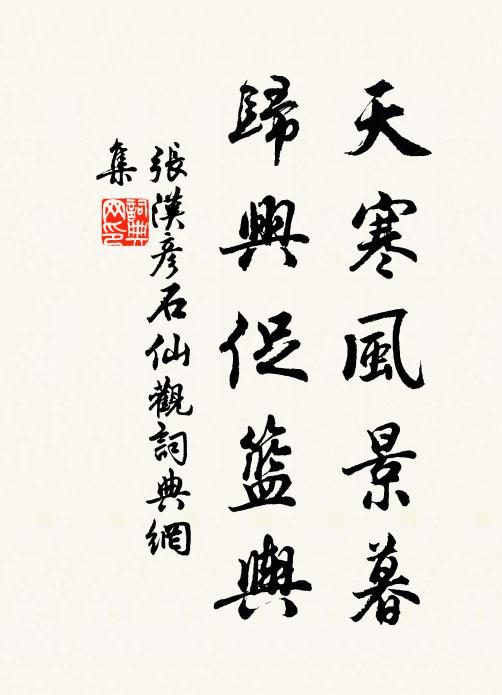 天寒風景暮
歸興促籃輿
張漢彥石仙觀詞典網
集
詞典網印